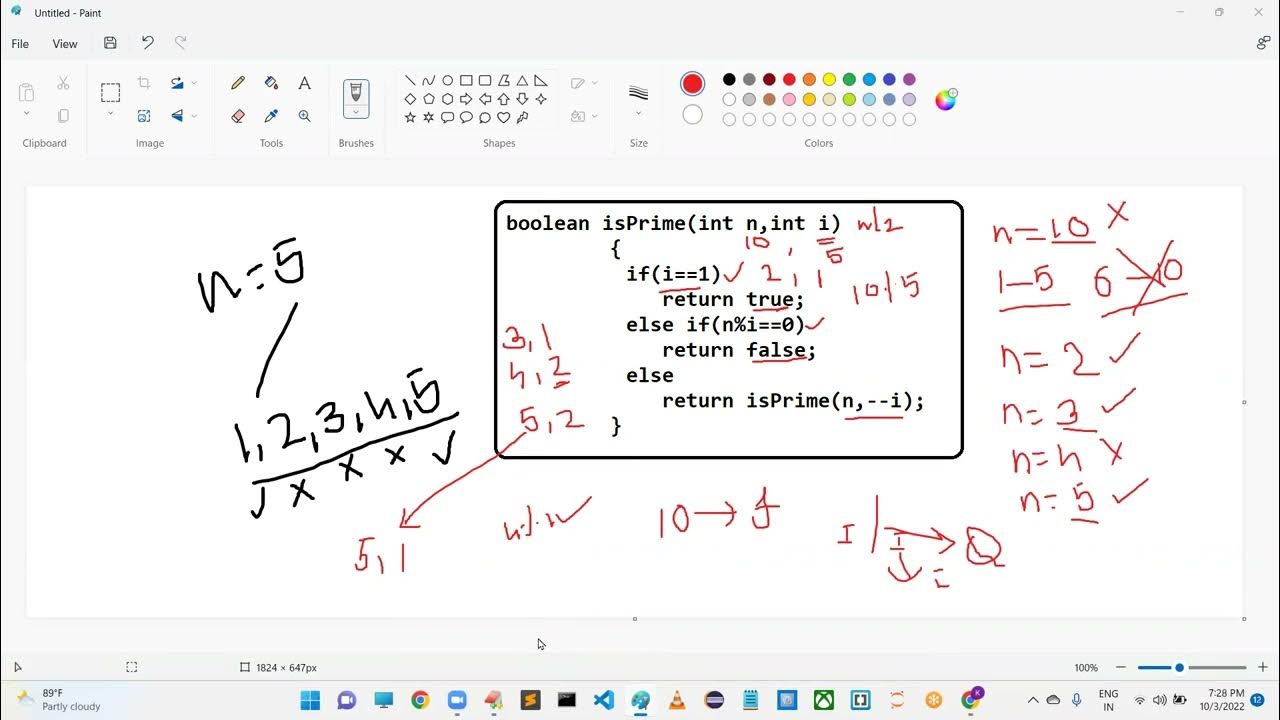 Untitled - Paint
File View
Clipboard Image Tools Brushes Shapes Size Colors
n=5
1,2,3,4,5
boolean isPrime(int n,int i) n/2
{ 10, 5
if(i==1) 2,1
return true; 10%5
else if(n%i==0)
return false;
else
return isPrime(n,--i);
}
3,1
4,2
5,2
5,1
10→f
n=10 X
1-5 6-10
n=2 ✓
n=3 ✓
n=4 X
n=5 ✓
1824 × 647px
100%
89°F
Partly cloudy
ENG
IN
7:28 PM
10/3/2022
12